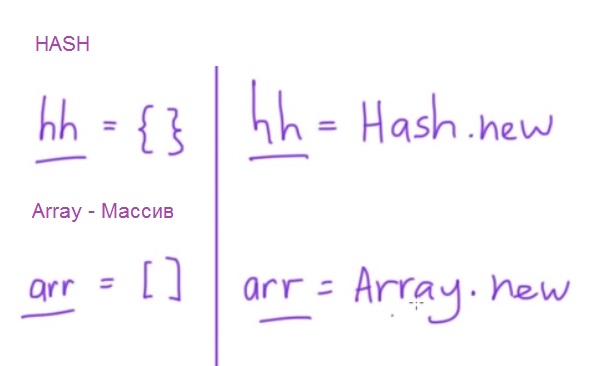 HASH
hh = {} hh = Hash.new
Array - Массив
arr = [] arr = Array.new